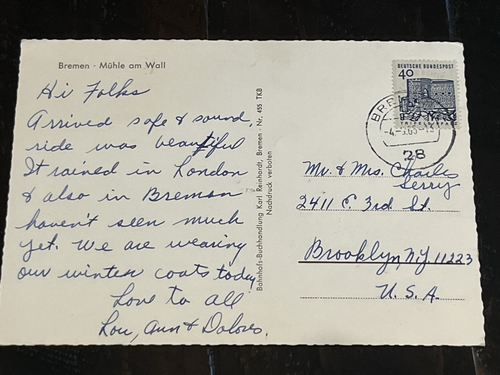 Bremen - Mühle am Wall
Hi Folks
Arrived safe & sound,
ride was beautiful
It rained in London
& also in Bremen
haven't seen much
yet. We are wearing
our winter coats today
Love to all
Lou, Ann & Dolores.
Bahnhofs-Buchhandlung Karl Reinhardt, Bremen - Nr. 455 TKB
Nachdruck verboten
DEUTSCHE BUNDESPOST
40
28
Mr. & Mrs. Charles
Serry
2411 E 3rd St.
Brooklyn NY 11223
U.S.A.